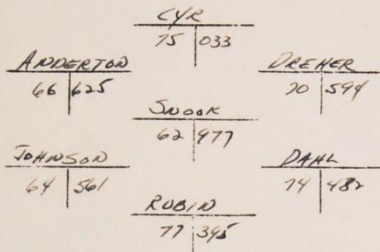 CYR
75 033
ANDERTON
66 625
DREHER
70 594
SNOOK
62 977
JOHNSON
64 561
DAHL
74 482
RUBIN
77 395